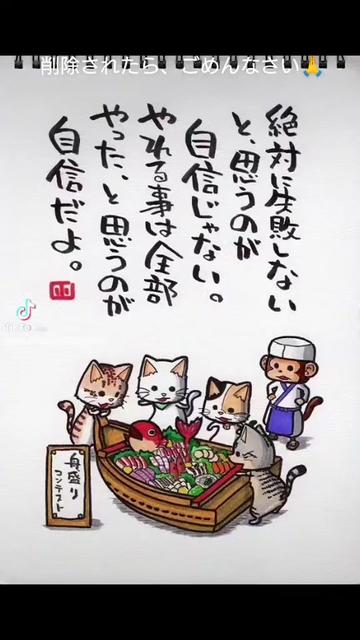 削除されたら、ごめんなさい🙏
絶対に失敗しない
と、思うのが
自信じゃない。
やれる事は全部
やった、と思うのが
自信だよ。
舟盛り
コンテスト